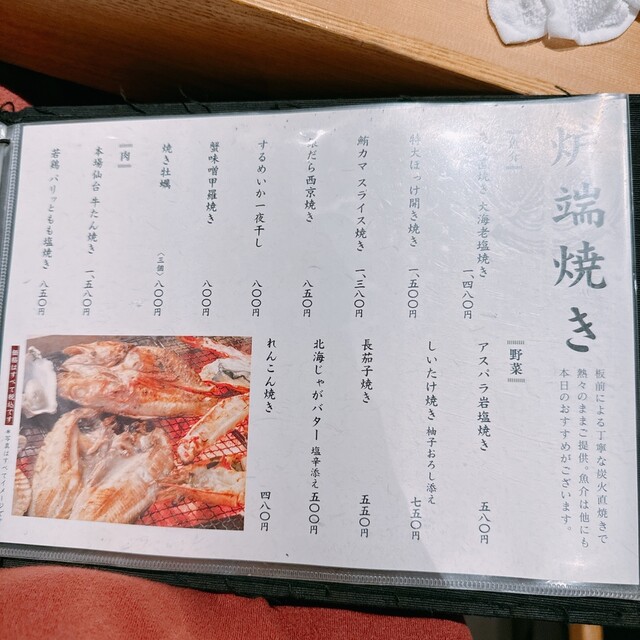 炉端焼き
板前による丁寧な炭火直焼きで
熱々のままご提供。魚介は他にも
本日のおすすめがございます。
大海老塩焼き 一、四八〇円
特大ほっけ開き焼き 一、五〇〇円
鮪カマ スライス焼き 一、三八〇円
だら西京焼き 八五〇円
するめいか一夜干し 八〇〇円
蟹味噌甲羅焼き 八〇〇円
焼き牡蠣 八〇〇円
肉
本場仙台 牛たん焼き 一、五八〇円
若鶏 パリッともも塩焼き 八五〇円
野菜
アスパラ岩塩焼き 五八〇円
しいたけ焼き 柚子おろし添え 七五〇円
長茄子焼き 五五〇円
北海じゃがバター 塩辛添え 五〇〇円
れんこん焼き 四八〇円